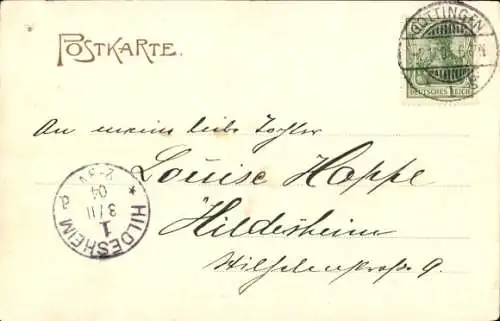 POSTKARTE.
GÖTTINGEN
DEUTSCHES REICH
An meine liebe Tochter
Louise Hoppe
Hildesheim
Wilhelmstraße 9.
* HILDESHEIM *
1
3/11
04